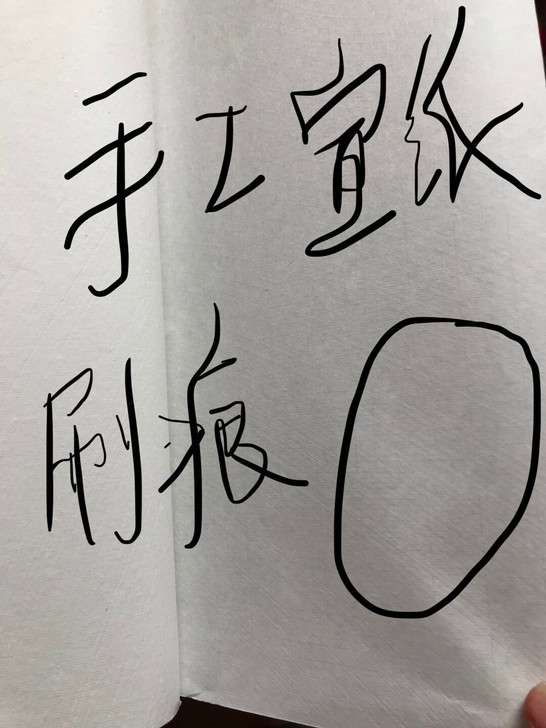 手工宣纸
刷痕